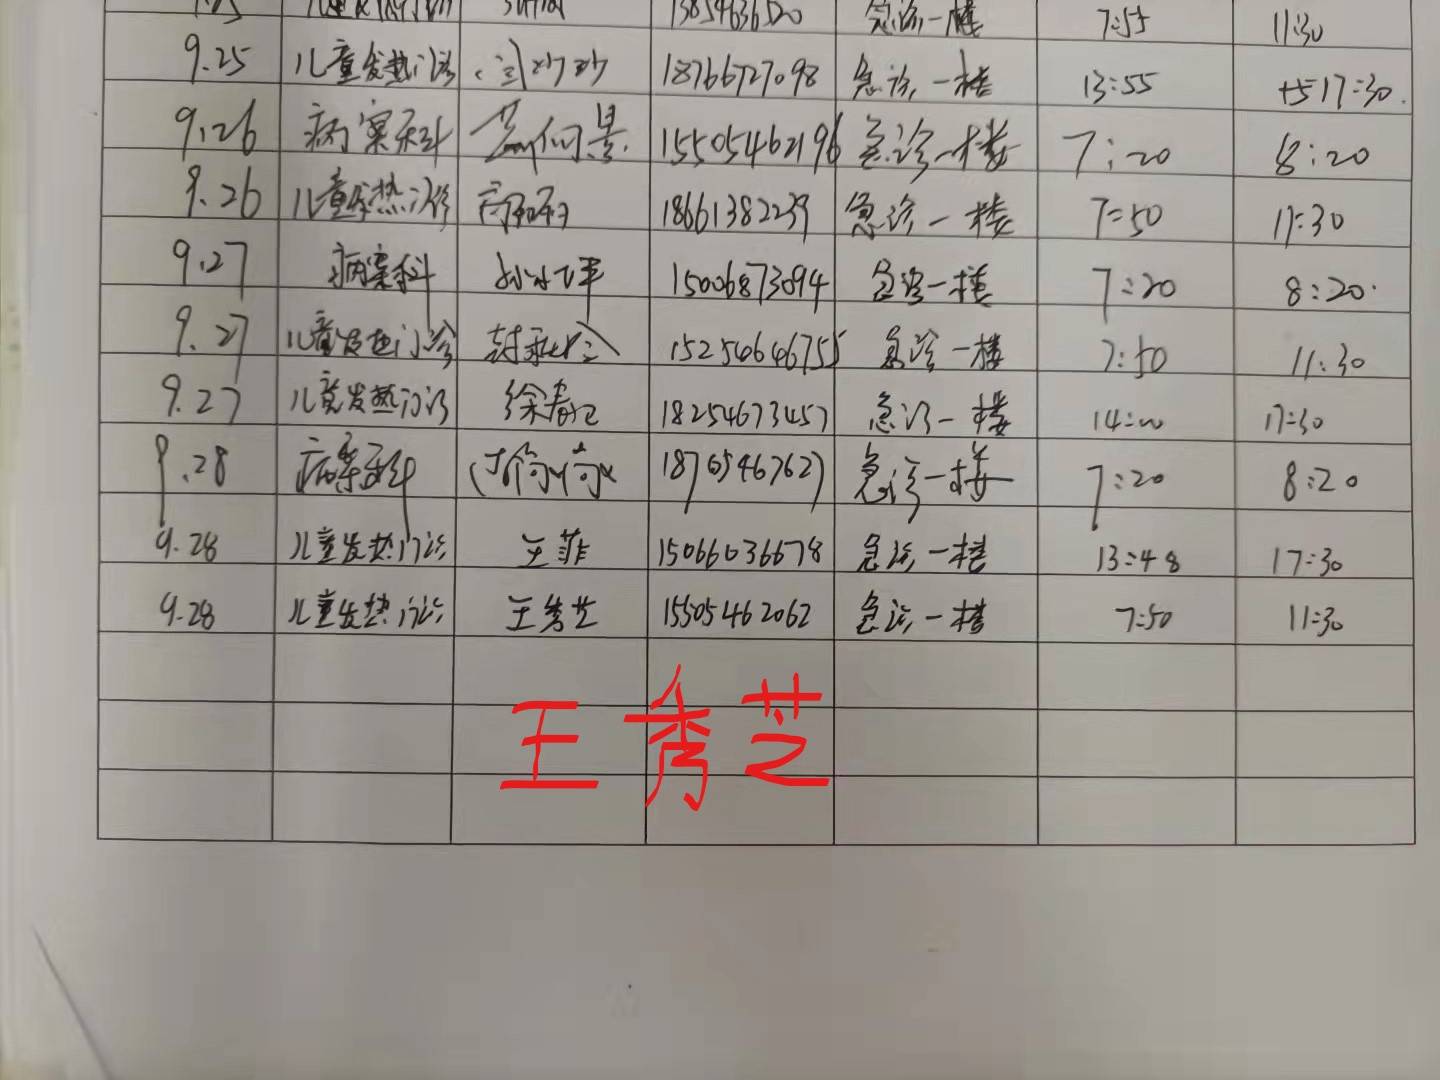 13854636520 急诊一楼 7:55 11:30
9.25 儿童发热门诊 18766727098 急诊一楼 13:55 17:30
9.26 病案科 15505462196 急诊一楼 7:20 8:20
9.26 儿童发热门诊 18661382239 急诊一楼 7:50 11:30
9.27 病案科 15006873094 急诊一楼 7:20 8:20
9.27 儿童发热门诊 15254646755 急诊一楼 7:50 11:30
9.27 儿童发热门诊 徐春 18254673457 急诊一楼 14:00 17:30
9.28 病案科 18765467627 急诊一楼 7:20 8:20
9.28 儿童发热门诊 王菲 15066036678 急诊一楼 13:48 17:30
9.28 儿童发热门诊 王秀芝 15505462062 急诊一楼 7:50 11:30
王秀芝